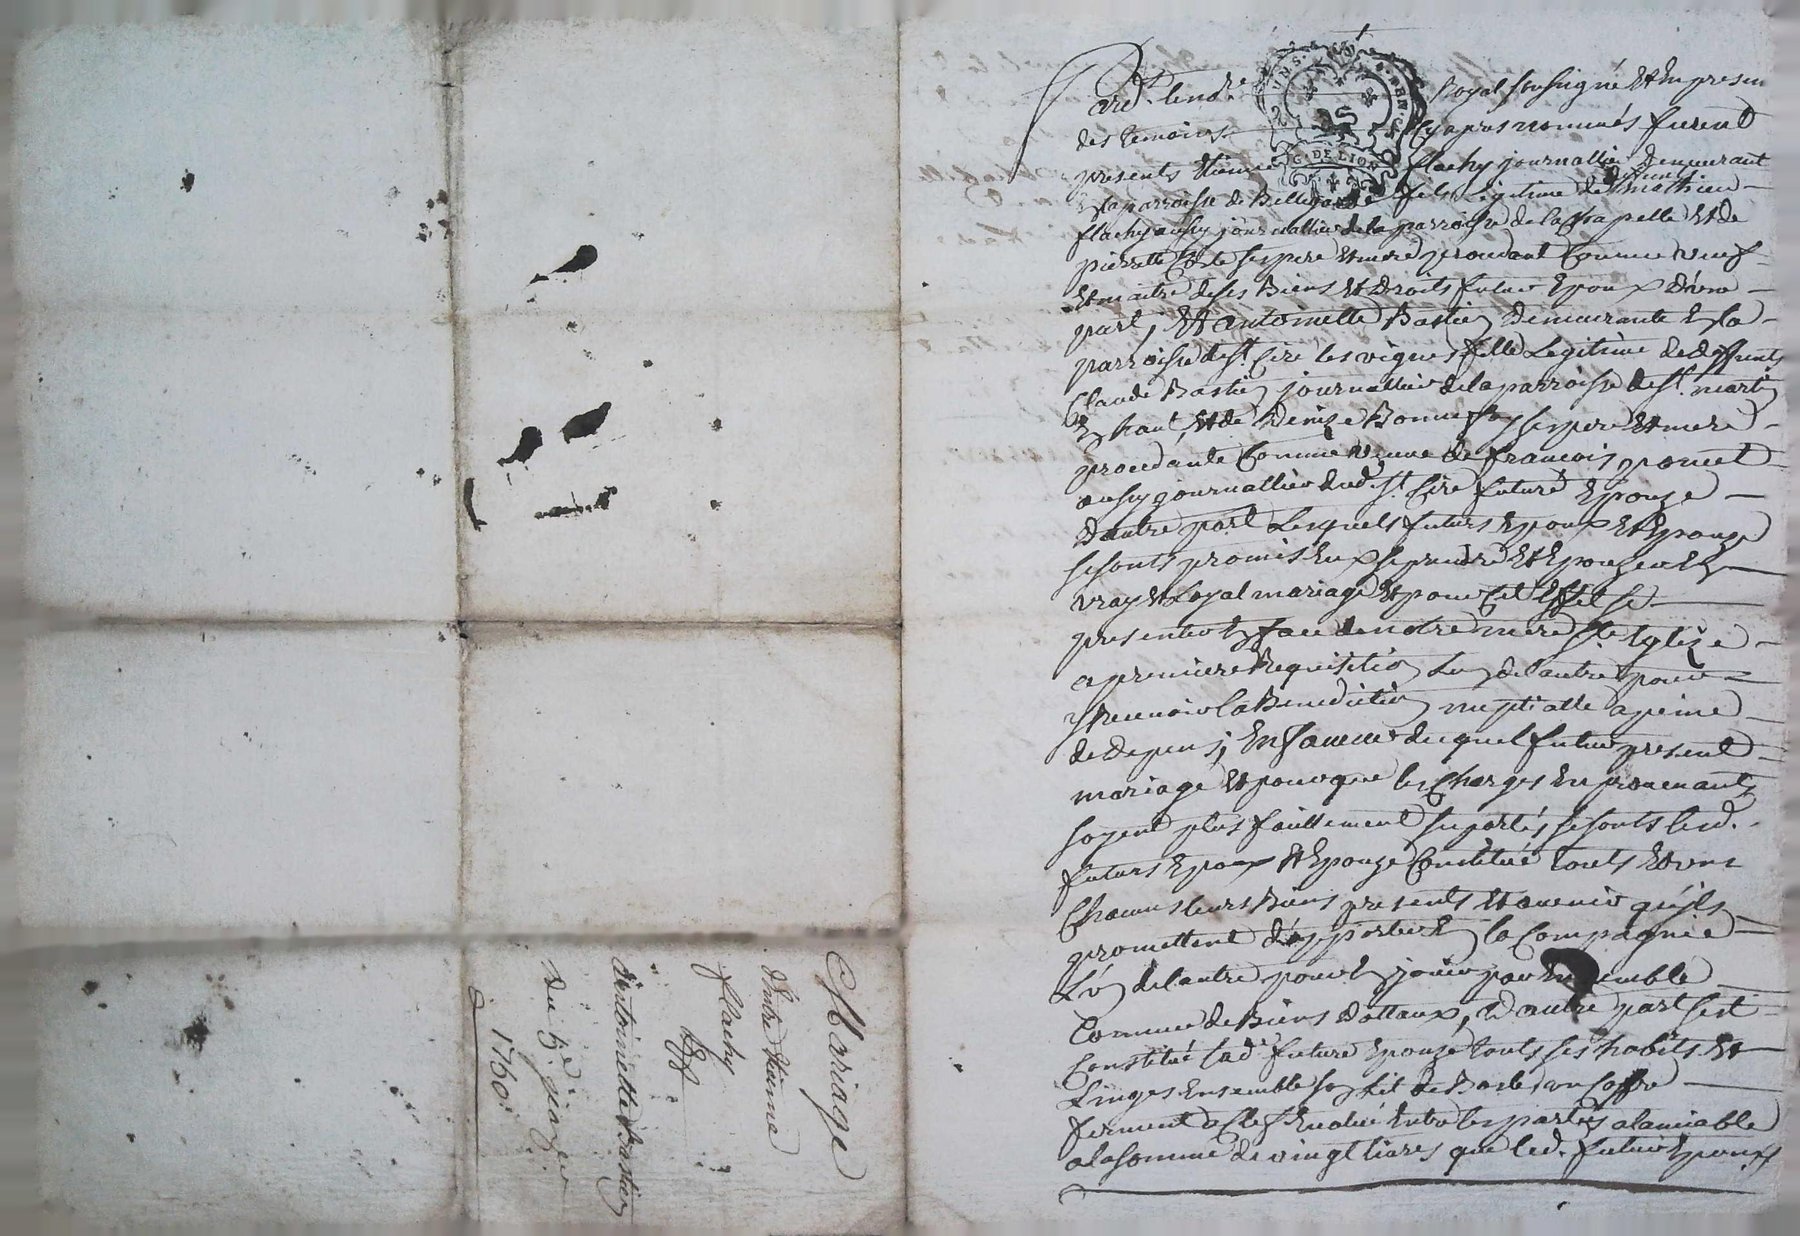 Mariage
d'entre Etienne
flachy
Et
d'antoinette Bastien
du 5e janvier
1760
Pard.t le no.re Royal soussigné Et En presen
des temoins cy apres nommés furent
presents Etienne flachy journallier Demeurant
En la parroisse de Bellegarde fils Legitime de deffunts mathieu
flachy aussy journallier de la parroisse de la Chapelle Et de
pierrette ses pere Et mere procedant Comme veuf
Et maitre de ses Biens Et Droits futur Epoux d'une
part, Et antoinette Bastien Demeurante En la
parroisse de St. Cire les vignes fille Legitime de deffunts
Claude Bastien journallier de la parroisse de St. martin
En haut, Et de Denise Bonnefoy ses pere Et mere
procedante Comme Veuve de francois poncet
aussy journallier dud. St. Cire future Epouze
D'autre part Lesquels futurs Epoux Et Epouze
se sonts promis Eux se prendre Et Epouzer En
vray Et Loyal mariage Et pour Cet Effet se
presenter En face de notre mere Ste Eglize
a premiere Requisition Lun de lautre pour
y Recevoir la Benediction nuptialle a peine
de depens; En faveur duquel futur present
mariage Et pour que les Charges En provenants
soyent plus faciltement suportés se sonts lesd.
futurs Epoux Et Epouze Constitué touts Et uns
Chacuns leurs Biens presents Et avenir qu'ils
promettent d'apporter En la Compagnie
L'un de lautre pour En jouir par Ensemble
Comme de Biens dottaux, D'autre part s'est
Constitué lad.e future Epouze touts ses habits Et
Linges Ensemble son lit de un Coffre
ferment a Clef Evalué Entre les parties a lamiable
a la somme de vingt livres que led. futur Epoux
G. DE LION